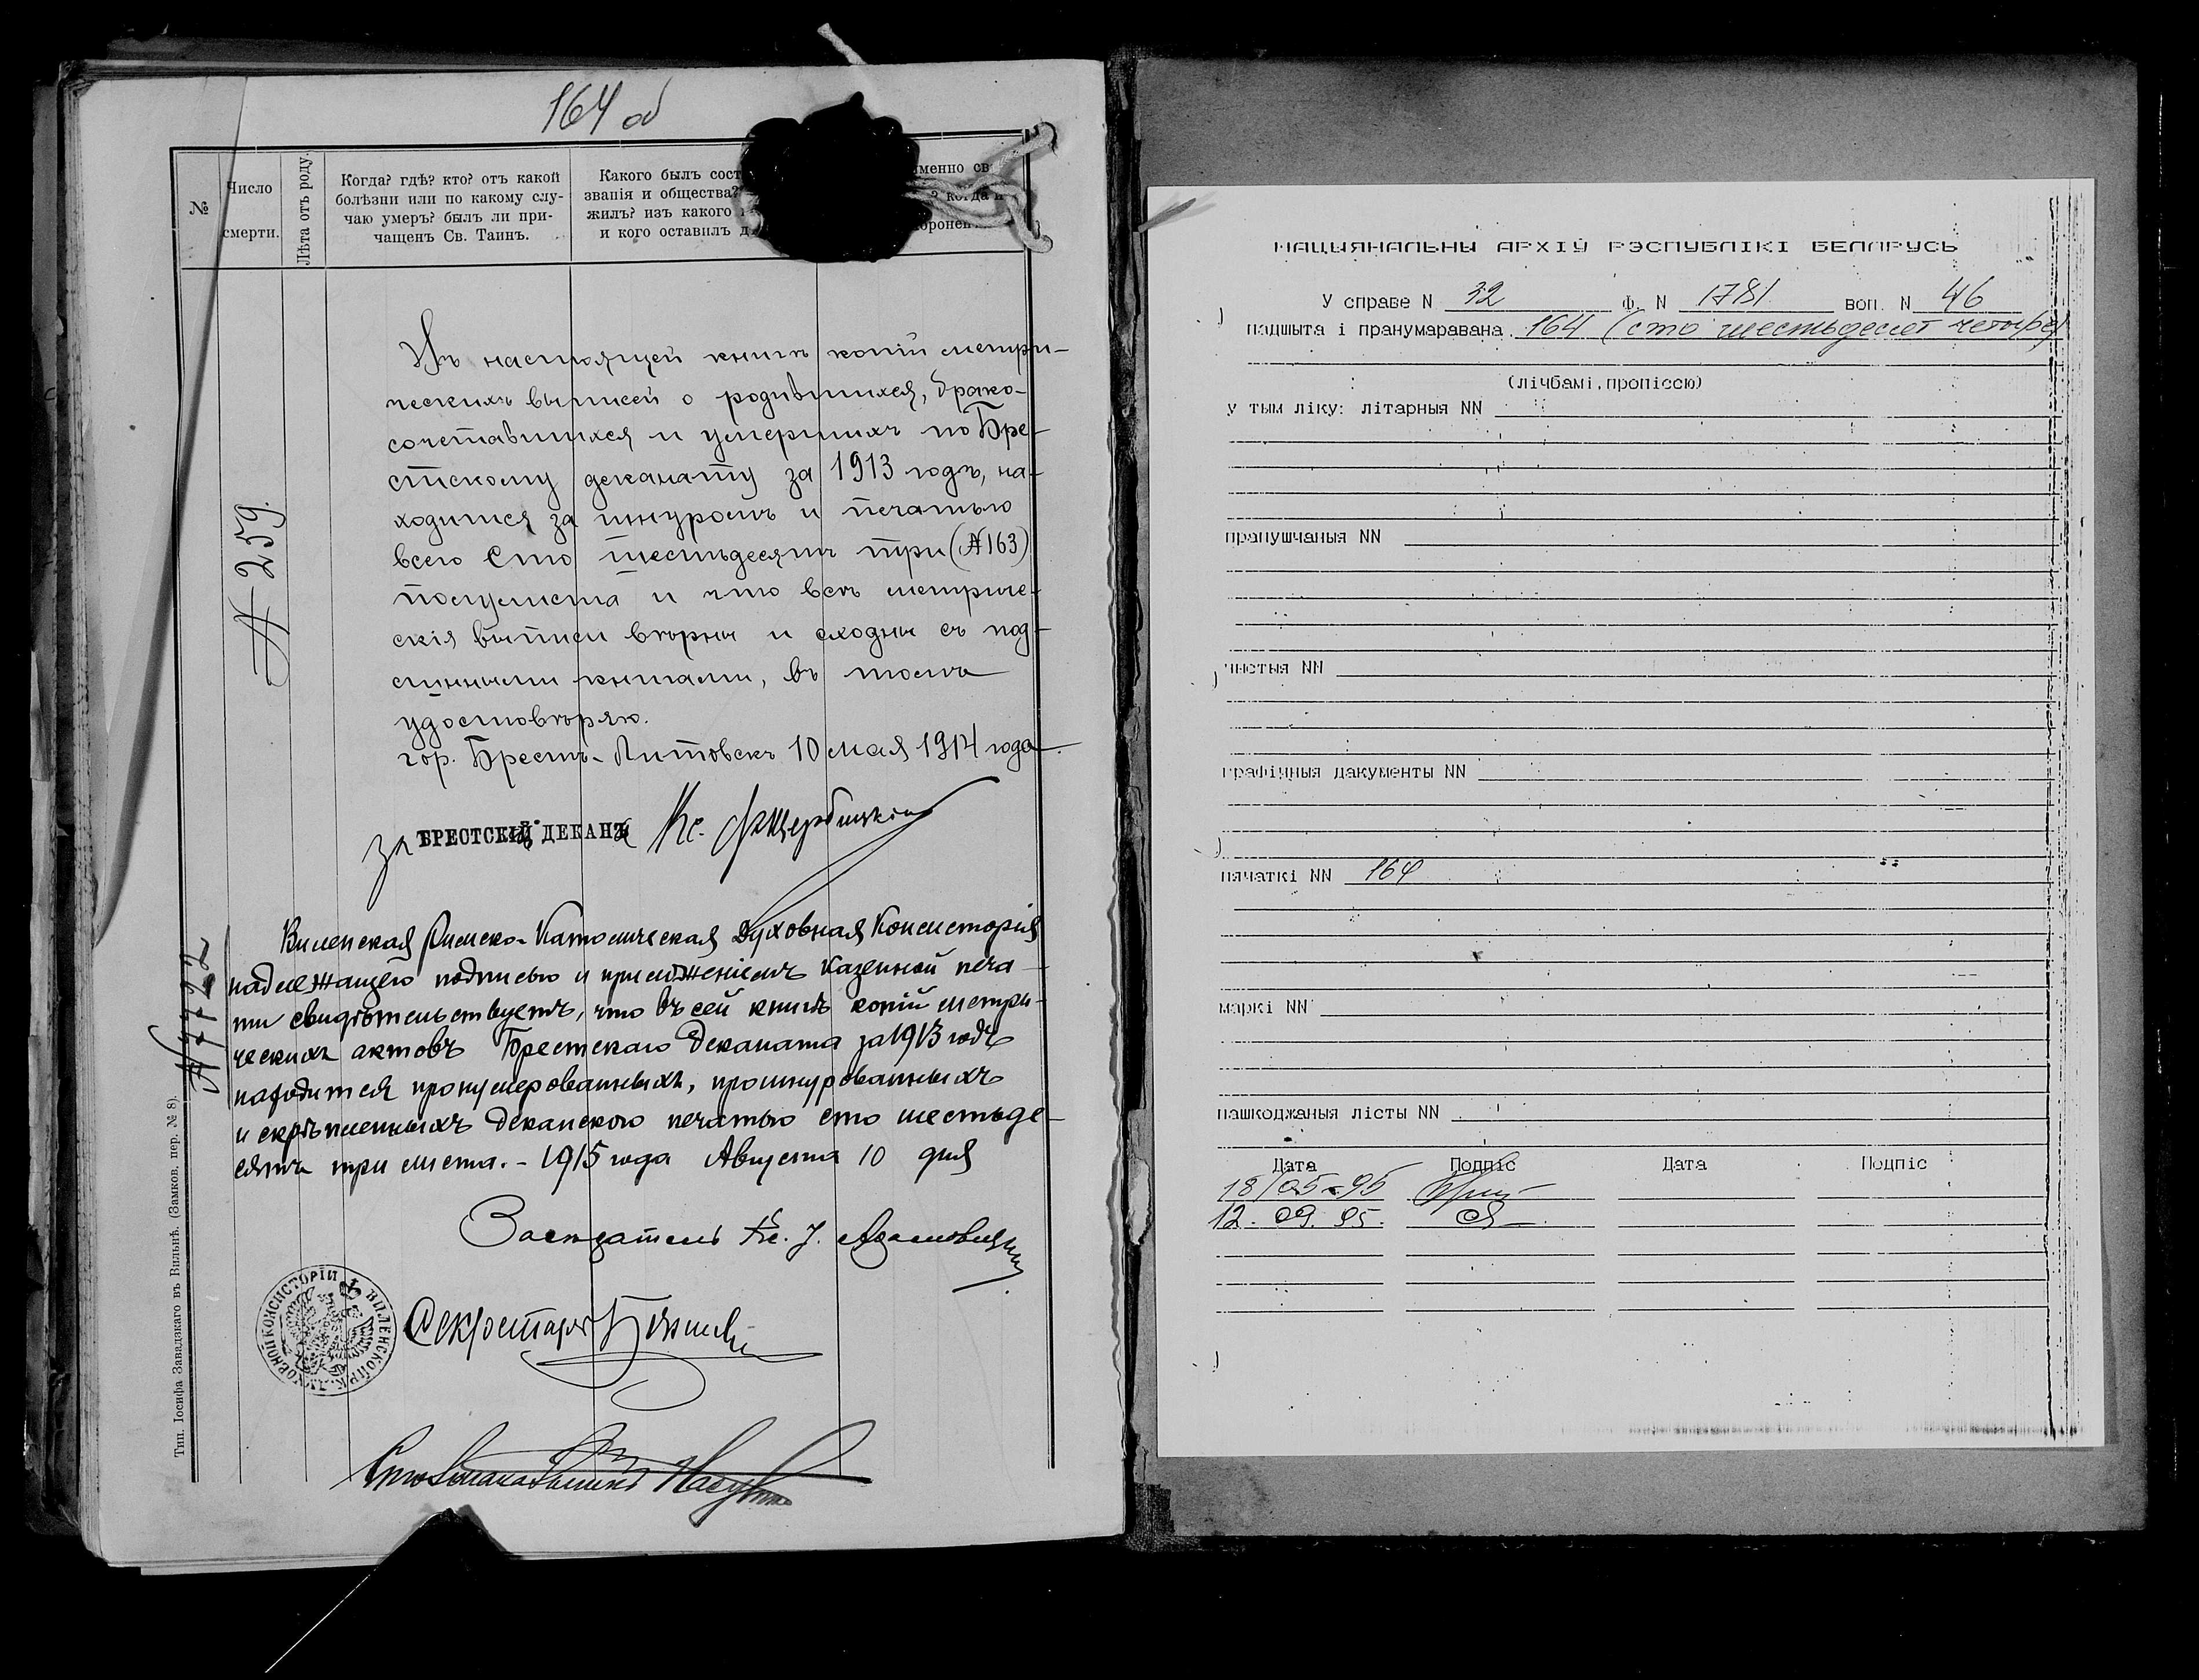 164 об
№
Число
смерти.
Лѣта отъ роду.
Когда? гдѣ? кто? отъ какой
болѣзни или по какому слу-
чаю умеръ? былъ ли при-
чащенъ Св. Таинъ.
Какого былъ сост
званія и общества?
жилъ? изъ какого
и кого оставилъ д
именно св
? когда и
оронен
Въ настоящей книгѣ копій метри-
ческихъ выписей о родившихся, брако-
сочетавшихся и умершихъ по Бре-
стскому деканату за 1913 годъ, на-
ходится за шнуромъ и печатью
всего сто шестьдесятъ три (№163)
полулиста и что всѣ метриче-
скія выписи вѣрны и сходны съ под-
линными книгами, въ томъ
удостовѣряю.
гор. Брестъ-Литовскъ 10 мая 1914 года
№ 259.
за БРЕСТСКІЙ ДЕКАНЪ Кс.
Виленская Римско-Католическая Духовная Консисторія
надлежащею подписью и приложеніемъ казенной печа-
ти свидѣтельствуетъ, что въ сей книгѣ копій метри-
ческихъ актовъ Брестскаго деканата за 1913 годъ
находится пронумерованныхъ, прошнурованныхъ
и скрѣпленныхъ деканскою печатью сто шестьде-
сятъ три листа. - 1915 года Августа 10 дня
№ 7722
Засѣдатель Кс. І.
Секретарь
ВИЛЕНСКОЙ Р. К. ДУХОВНОЙ КОНСИСТОРІИ
Столоначальникъ
Тип. Іосифа Завадзкаго въ Вильнѣ. (Замков. пер. № 8).
НАЦЫЯНАЛЬНЫ АРХІЎ РЭСПУБЛІКІ БЕЛАРУСЬ
У справе N 32 ф. N 1781 воп. N 46
падшыта і пранумаравана 164 (сто шестьдесят четыре)
(лічбамі, пропіссю)
у тым ліку: літарныя NN
прапушчаныя NN
чыстыя NN
графічныя дакументы NN
пячаткі NN 164
маркі NN
пашкоджаныя лісты NN
Дата Подпіс Дата Подпіс
18/05-95
12. 09. 95.